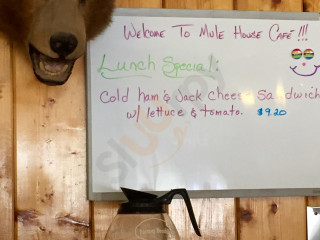 Welcome To Mule House Café!!!
Lunch Special:
Cold ham & Jack chees Sandwich
w/ lettuce & tomato. $9.20